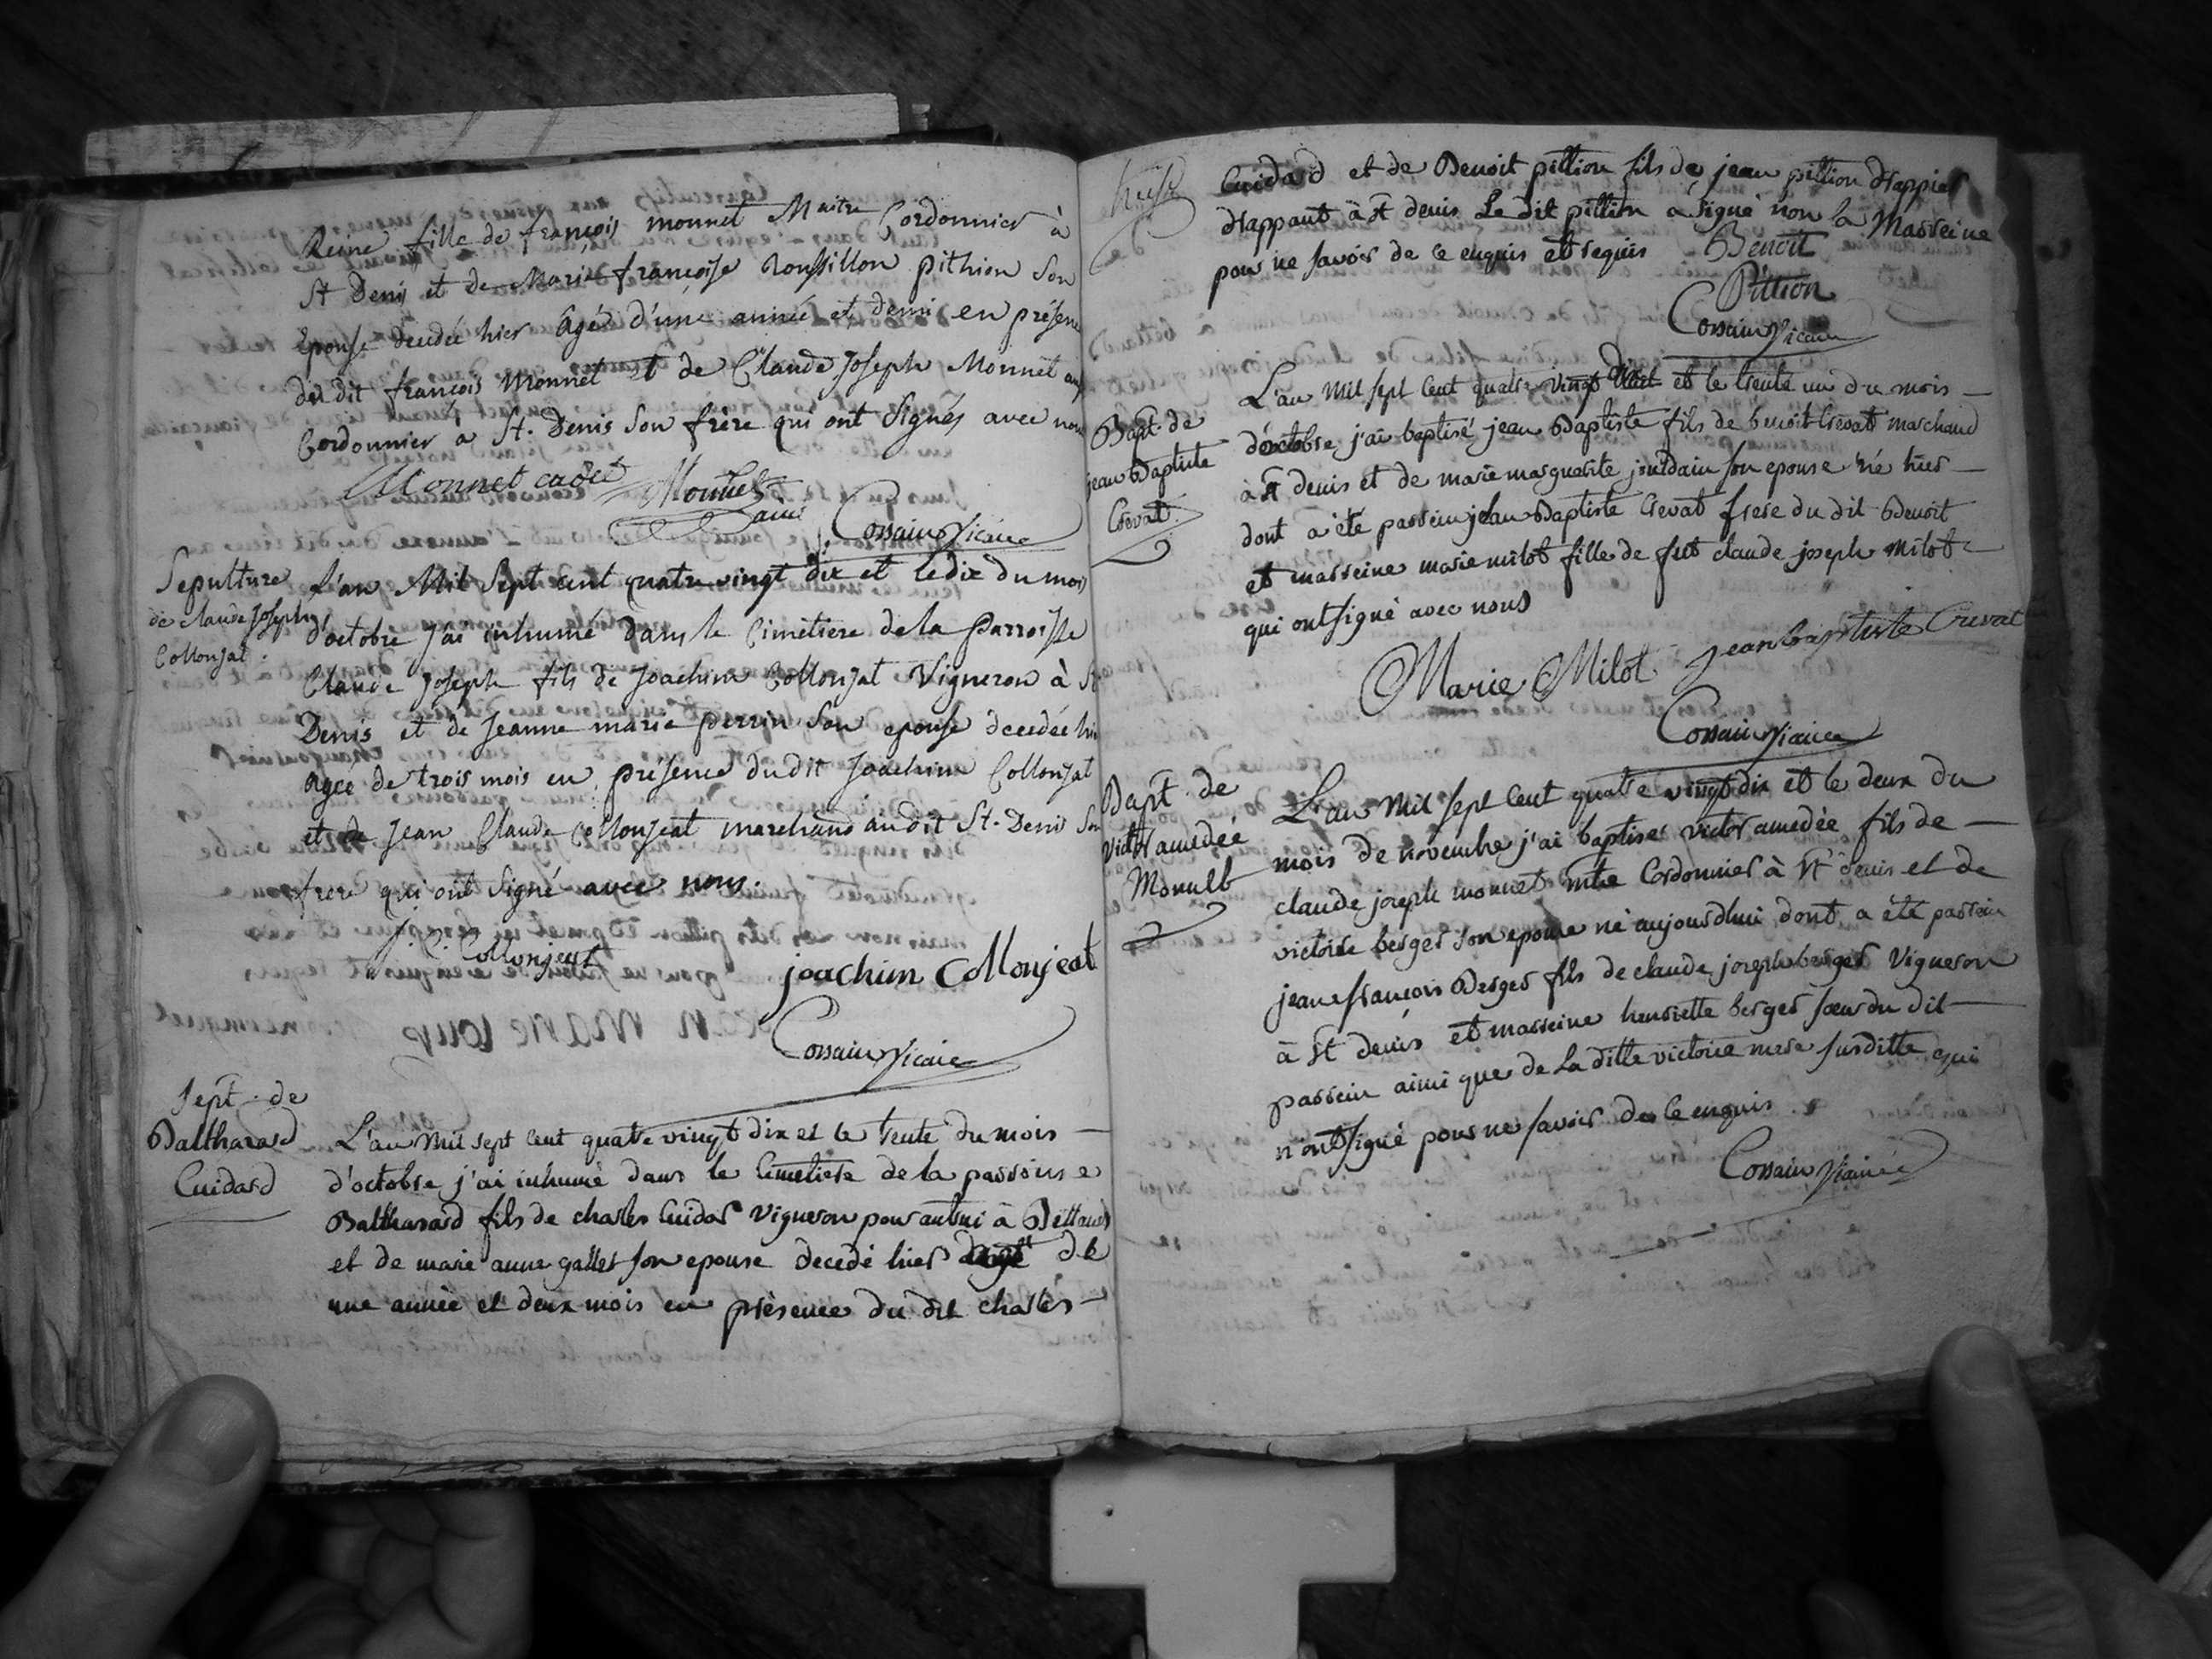 Reine fille de françois monnet Maitre Cordonnier à
St Denis et de Marie françoise Roussillon pithion Son
Epouse decedée hier Agée d'une année et demi en présence
du dit françois Monnet et de Claude Joseph Monnet aussi
Cordonnier à St. Denis Son frère qui ont Signés avec nous
Monnet cadet Monnet
ainé
Cossain Vicaire
Sepulture
de Claude Joseph
Collonjat.
L'an Mil Sept cent quatre vingt dix et le dix du mois
d'octobre J'ai inhumé dans le Cimetiere de la Parroisse
Claude Joseph fils de Joachim Collonjat Vigneron à St
Denis et de Jeanne marie perrin Son epouse decedée hier
agée de trois mois en présence du dit Joachim Collonjat
et de Jean Claude Collonjeat marchand au dit St. Denis Son
frere qui ont Signé avec nous.
J. C. Collonjeat
joachim Collonjeat
Cossain Vicaire
Sept. de
Balthazard
Cuidard
L'an mil sept cent quatre vingt dix et le trente du mois
d'octobre j'ai inhumé dans le cimetiere de la parroisse
Balthazard fils de charles Cuidar vigneron pour autrui à Bettant
et de marie anne gallet son epouse decedé hier agé de
une année et deux mois en présence du dit charles
Cuidard et de Benoit pittion fils de jean pittion
à St denis Le dit pittion a signé non la Marreine
pour ne savoir de ce enquis et requis
Benoit
Pittion
Cossain Vicaire
Bapt. de
jean Baptiste
Crevat.
L'an Mil sept cent quatre vingt dix et le trente un du mois
d'octobre j'ai baptisé jean Baptiste fils de benoit Crevat marchand
à St denis et de marie marguerite jourdain son epouse né hier
dont a été parrein jean Baptiste Crevat frere du dit Benoit
et marreine marie milot fille de feu claude joseph milot
qui ont signé avec nous
Marie Milot jean baptiste Crevat
Cossain Vicaire
Bapt. de
Victor amedée
Monnet
L'an Mil sept cent quatre vingt dix et le deux du
mois de novembre j'ai baptisé victor amedée fils de
claude joseph monnet mtre Cordonnier à St denis et de
victoire berger son epouse né aujourdhui dont a été parrein
jean françois Berger fils de claude joseph berger Vigneron
à St denis et marreine henriette berger soeur du dit
parrein ainsi que de la ditte victoire mere susditte qui
n'ont signé pour ne savoir de ce enquis
Cossain Vicaire